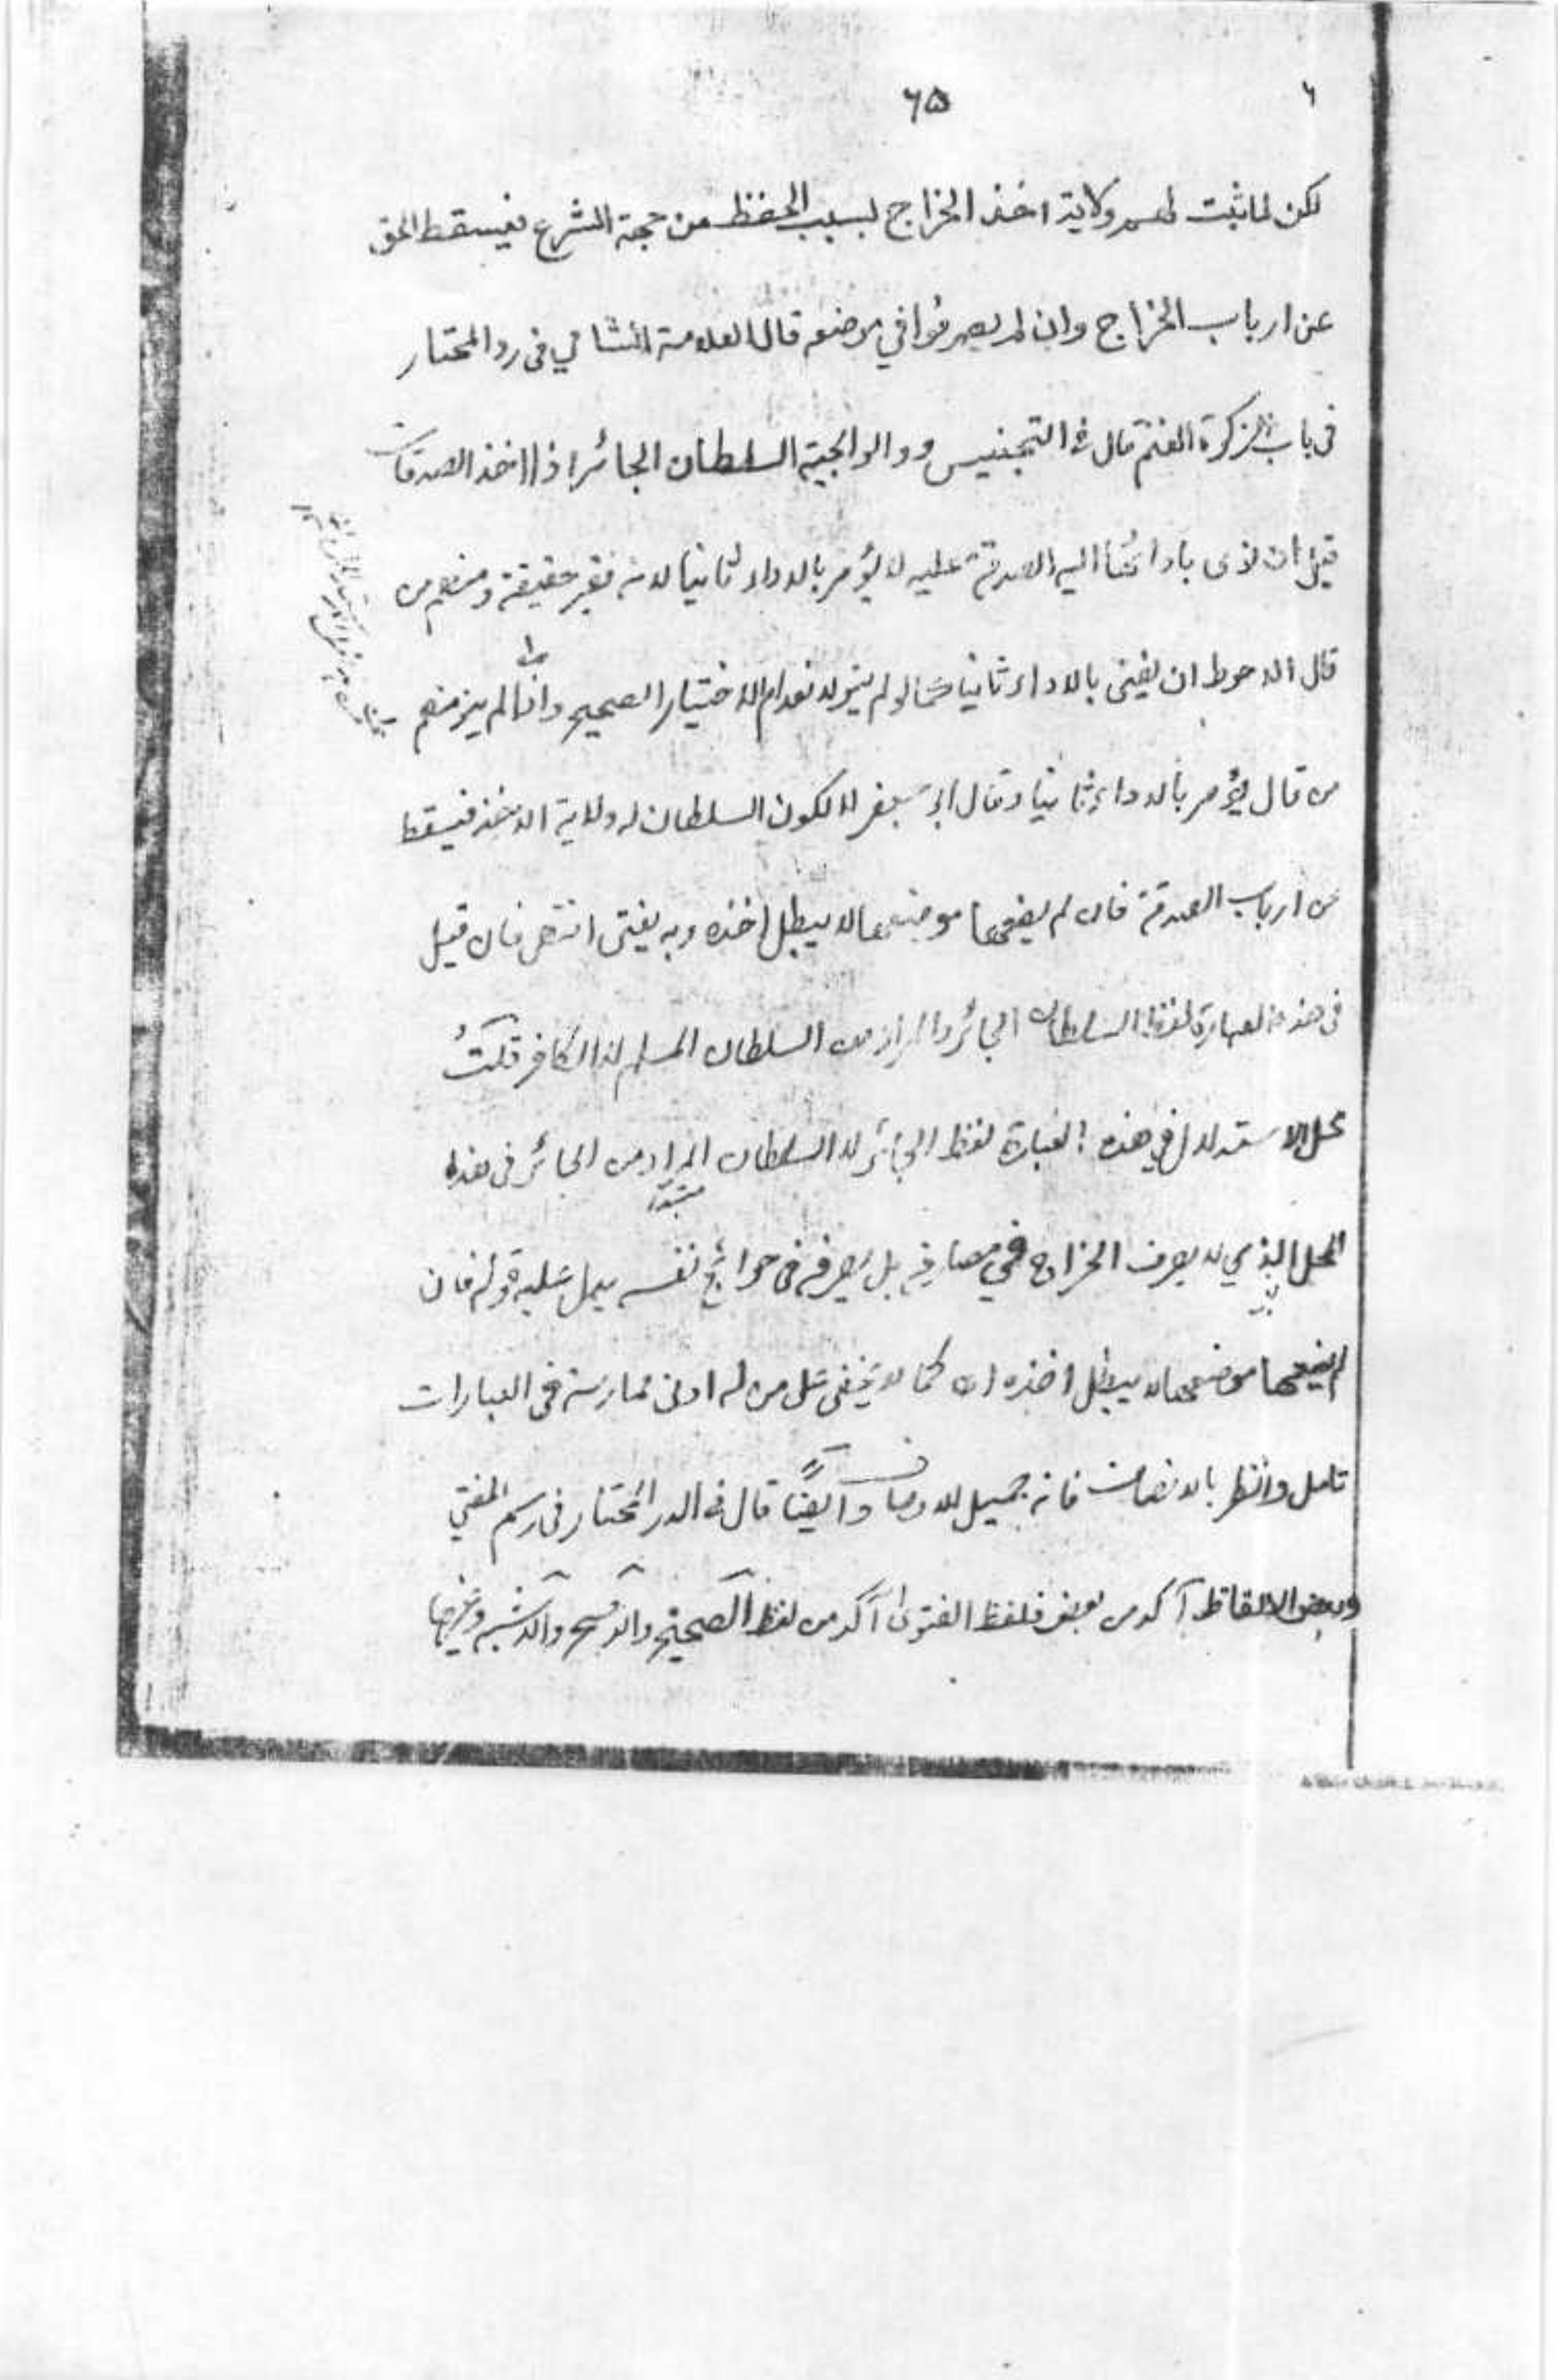 ۶۵
لكن لما ثبت لهم ولاية اخذ الخراج لسبب الحفظ من جهة الشرع فيسقط الحق
عن ارباب الخراج وان لم يصرفوا في موضعه قال العلامة الشامي في رد المحتار
في باب زكوة الغنم قال في التجنيس و والوالجية السلطان الجائر اذا اخذ الصدقات
قيل ان نوى باداءها اليه الصدقة عليه لا يؤمر بالاداء ثانيا لانه فقير حقيقة ومنهم من
قال الاحوط ان يفتى بالاداء ثانيا كما لو لم ينو لانعدام الاختيار الصحيح واذا لم ينو منهم
من قال يؤمر بالاداء ثانيا وقال ابو جعفر لا لكون السلطان له ولاية الاخذ فيسقط
عن ارباب الصدقة فان لم يضعها موضعها لا يبطل اخذه وبه يفتى انتهى فان قيل
في هذه العبارة لفظ السلطان الجائر والمراد من السلطان المسلم لا الكافر قلتُ
محل الاستدلال في هذه العبارة لفظ الجائر لا السلطان المراد من الجائر في هذا
المحل الذي لا يصرف الخراج في مصارفه بل يصرفه في حوائج نفسه يدل عليه قوله فان
لم يضعها موضعها لا يبطل اخذه اه كما لا يخفى على من له ادنى ممارسة في العبارات
تامل وانظر بالانصاف فانه جميل الاوصاف وايضًا قال في الدر المختار في رسم المفتي
وبعض الالفاظ آكد من بعض فلفظ الفتوى آكد من لفظ الصحيح والاصح والاشبه وغيرها